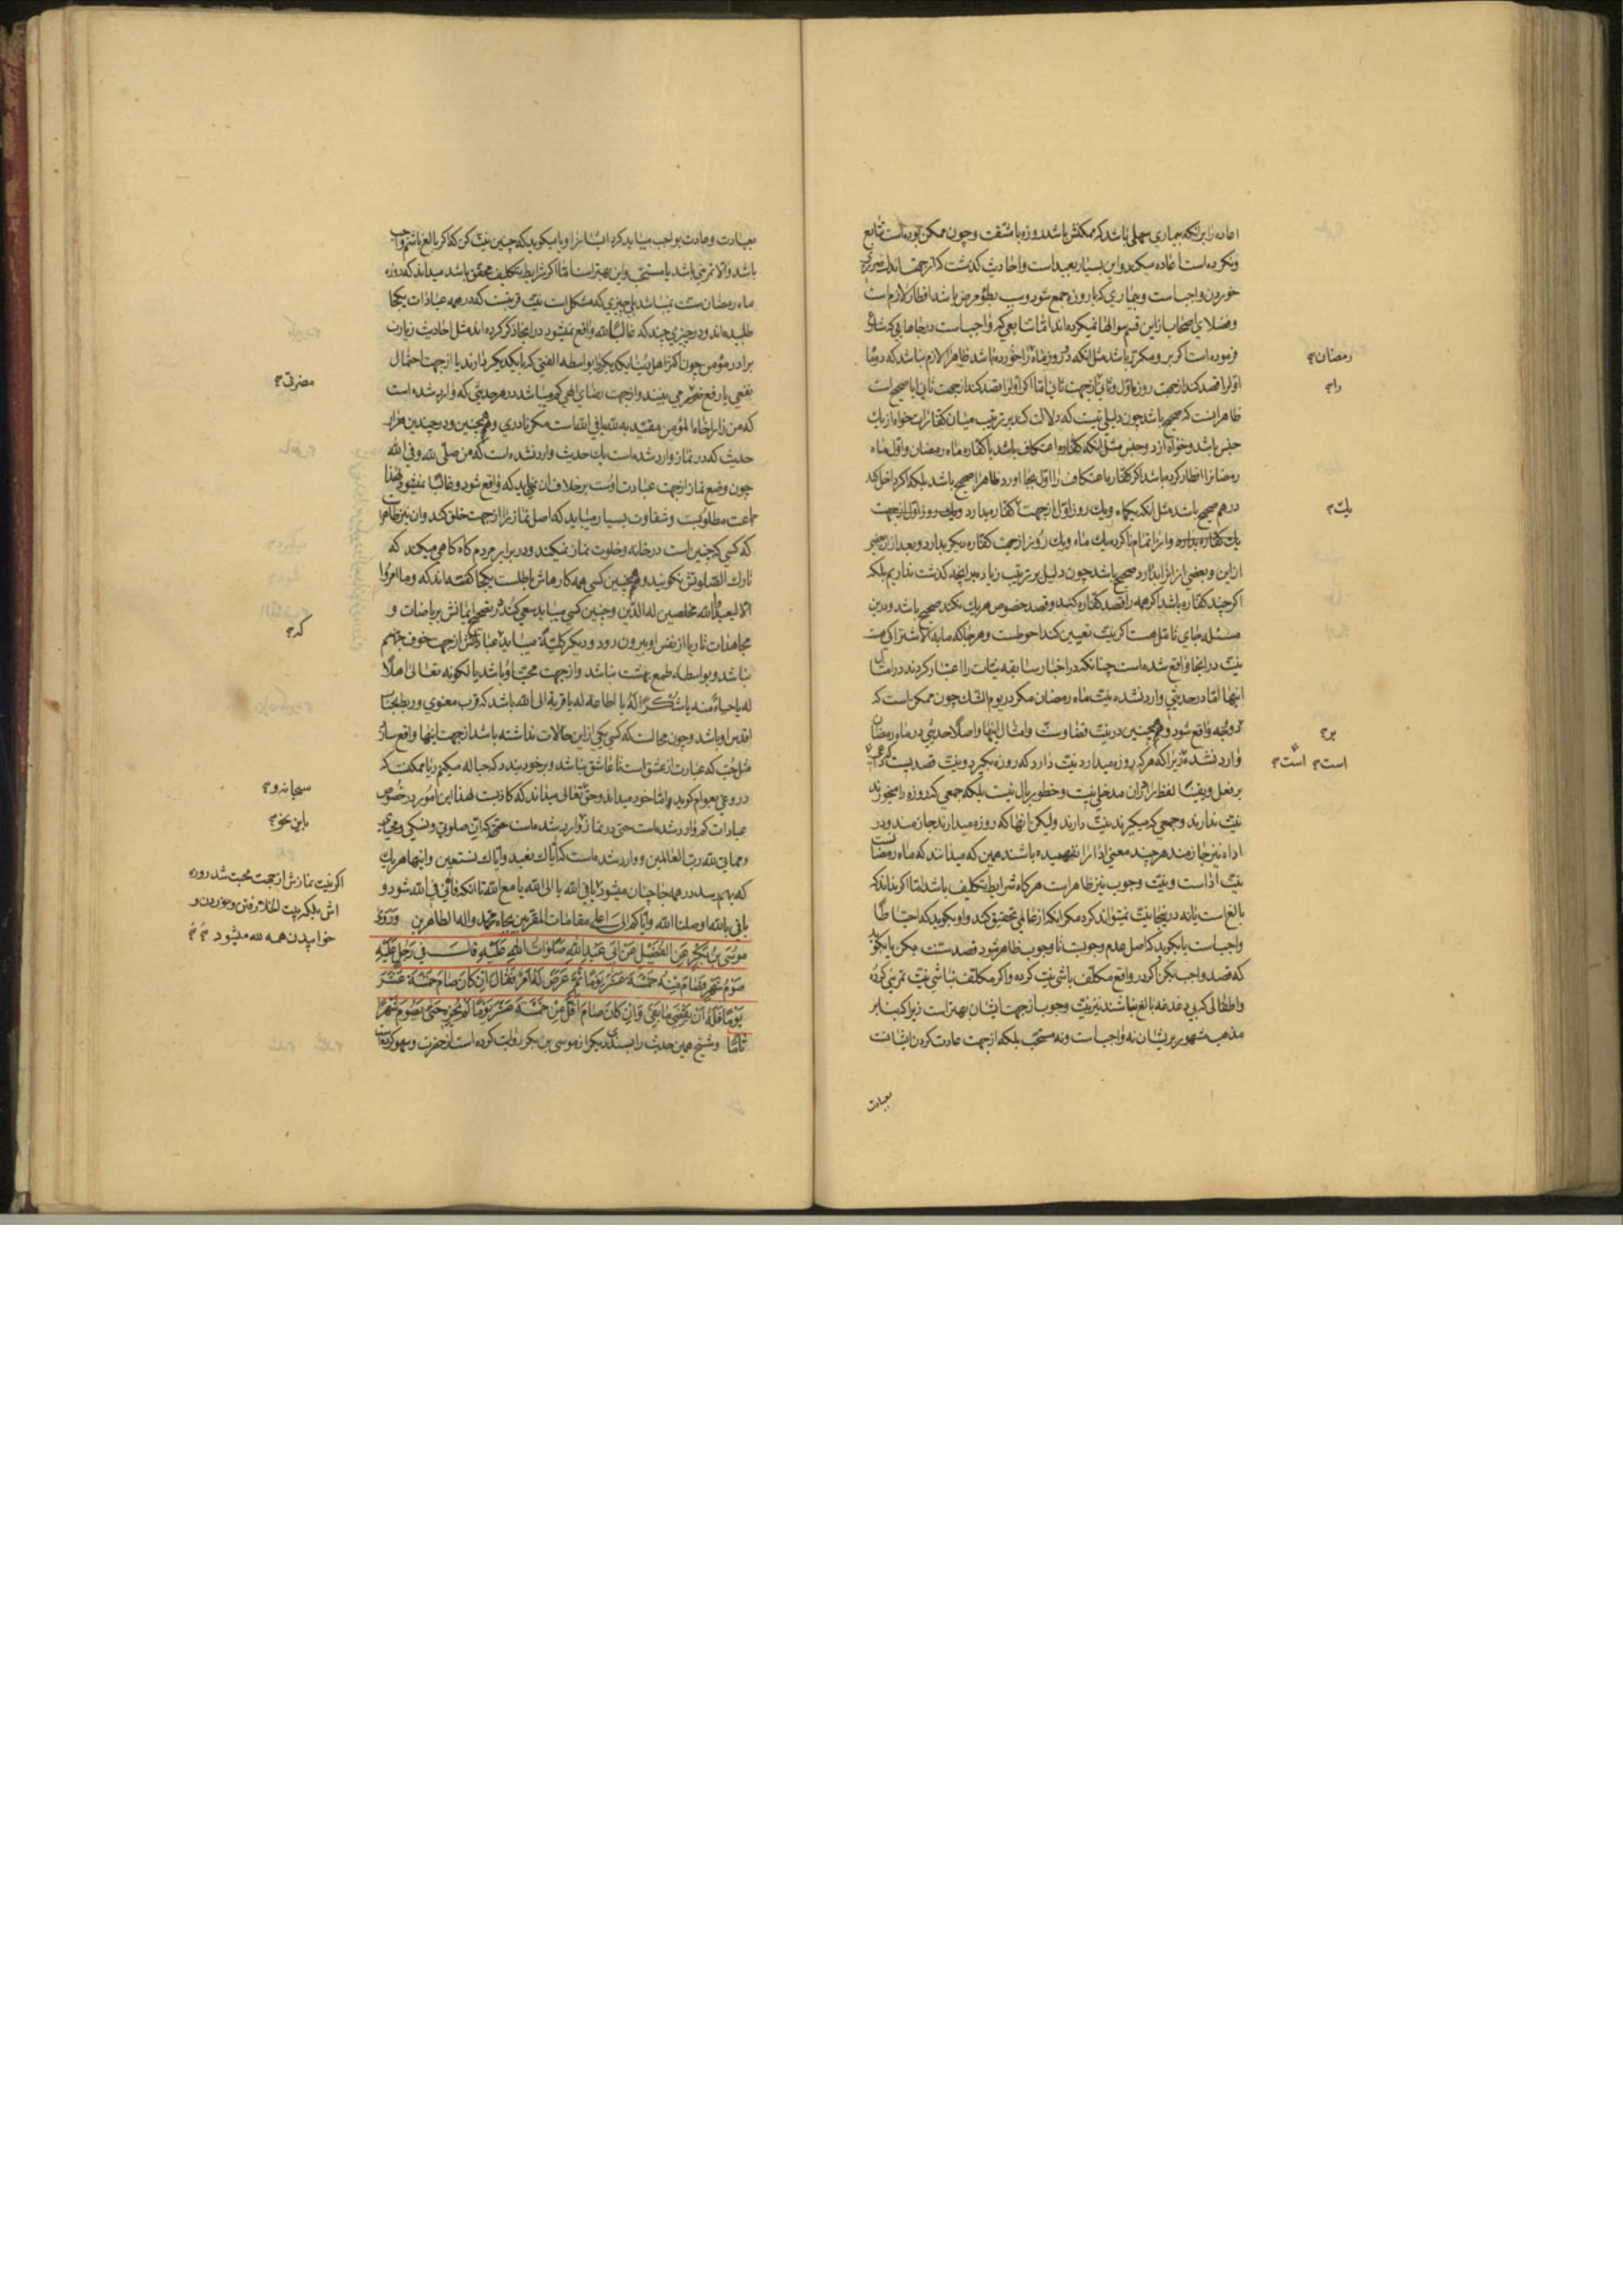 اعاده را برانکه بیماری سهلی باشد که ممکنش باشد روزه با مشقت و چون ممکن بوده است تتابع
ونکرده است اعاده میکند و این بسیار بعید است و احادیث گذشت که از جهت اندک
خوردن واجبست و بیماری که با روزه جمع شود و سبب بطؤ مرض باشد افطار لازم است
و فضلای اصحاب از این قسم سوالها نمیکرده اند
فرموده است
اول را قصد کند از جهت روزه اول و ثانی از جهت ثانی اما اگر اول را قصد کند از جهت ثانی ایا صحیح است
ظاهر اینست که صحیح باشد چون دلیلی نیست که دلالت کند بر ترتیب میان کفارات خواه از یک
جنس باشد و خواه از دو جنس مثل انکه کفاره اعتکاف باشد یا کفاره ماه رمضان و اول ماه
رمضان را افطار کرده باشد اگر کفاره اعتکاف را اول بجا اورد ظاهرا صحیح باشد بلکه اگر داخل کند
درهم صحیح باشد مثل انکه یکماه و یک روز اول از جهت کفاره بدارد و یک روز اول از جهت
یک کفاره بدارد و انرا تمام نا کرده یک ماه و یک روز از جهت کفاره دیگر بدارد و بعد از ان بعضی
از این و بعضی از انرا بدارد صحیح باشد چون دلیل بر ترتیب زیاده بر انچه گذشت نداریم بلکه
اگر چند کفاره باشد اگر همه را قصد کفاره کند و قصد خصوص هر یک نکند صحیح باشد و در این
مسئله جای تامل هست اگر نیت تعیین کند احوطست و هر جا که ما به الاشتراکی هست
نیت در انجا واقع شده است چنانکه در اخبار سابقه نیات را اعتبار کردند در امثال
اینها اما در حدیثی وارد نشده نیت ماه رمضان مگر در یوم الشک چون ممکن است که
بر دو وجه واقع شود و همچنین در نیت قضا و سنت و امثال اینها و اصلا حدیثی در ماه رمضان
وارد نشد زیرا که هر که روزه میدارد نیت دارد که روزه بگیرد و نیت قصدیست که داعی
بر فعل و یقینا لفظ را در ان مدخلی نیست و خطور ببال نیست بلکه جمعی که روزه را میخورند
نیت ندارند و جمعی که میگیرند نیت دارند ولیکن انها که روزه میدارند جازمند و در
اداء نیز جازمند هر چند معنی ادا را نفهمیده باشند همین که میدانند که ماه رمضانست
نیت اداست و نیت وجوب نیز ظاهر است هر گاه شرایط تکلیف باشد اما اگر نداند که
بالغ است یا نه در اینجا نیت نمیتواند کرد مگر انکه از عالمی تحقیق کند و او بگوید که احتیاطا
واجبست یا بگوید که اصل عدم وجوبست تا وجوب ظاهر شود قصد سنت بکن یا بگوید
که قصد واجب بکن اگر در واقع مکلف باشی نیت کرده و اگر مکلف نباشی نیت تمرینی کرده
و اطفالی که بی دغدغه بالغ نباشند نیز نیت وجوب از جهت ایشان بهتر است زیرا که بنا بر
مذهب مشهور بر ایشان نه واجبست و نه مستحب بلکه از جهت عادت کردن ایشانست
بعبادت
رمضان
را
یک
بر
است است
بعبادت و عادت بواجب میباید کرد ایشانرا و یا میگوید که چنین نیت کن که اگر بالغ باشم واجب
باشد والا تمرینی باشد یا مستحب و این بهتر است اما اگر شرایط تکلیف محقق باشد میداند که روزه
ماه رمضان سنت نمیباشد بلی چیزی که مشکل است نیت قربتست که در همه عبادات بیکجا
طلبیده اند و در چیزی چند که غالبا لله واقع نمیشود در انجا ذکر کرده اند مثل احادیث زیارت
برادر مؤمن چون اکثر اهل دنیا یکدیگر را بواسطه الفتی که با یکدیگر دارند یا از جهت احتمال
نفعی یا رفع ضرری می بینند و از جهت رضای الهی کم میباشد در هر حدیثی که وارد شده است
که من زار اخاه المؤمن مقید به لله یا فی الله است مگر نادری و همچنین در چندین هزار
حدیث که در نماز وارد شده است یک حدیث وارد نشده است که من صلی لله و فی الله
چون وضع نماز از جهت عبادت اوست بر خلاف ان نمیباید که واقع شود
که کسی که چنین است در خانه و خلوت نماز نمیکند و در برابر مردم گاه گاهی میکند که
تارک الصلوتش نگویند و همچنین کسی همه کارهاش باطلست بیکجا گفته اند که وما امروا
الا لیعبدوا الله مخلصین له الدین و چنین کسی میباید سعی کند در تصحیح ایمانش بریاضات و
مجاهدات تا ریا از نفس او بیرون رود و دیگر میباید عبادتش از جهت خوف جهنم
نباشد و بواسطه طمع بهشت نباشد و از جهت محبت او باشد یا لکونه تعالی اهلا
له یا حیاء منه یا شکرا له یا اطاعة له یا قربة الی الله باشد که قرب معنوی و ربط بجناب
اقدس او باشد و چون محالست که کسی یکی از این حالات نداشته باشد از جهت اینها واقع سازد
مثل حب که عبارت از عشق است تا عاشق نباشد و بر خود بندد که حبا له میکنم ریا ممکنست که
دروغی بعوام گوید و اما خود میداند و حق تعالی میداند که کاذبست لهذا این امور در خصوص
عبادات کم وارد شده است حتی در نماز وارد شده است که ان صلوتی و نسکی و محیای
و مماتی لله رب العالمین و وارد شده است که ایاک نعبد و ایاک نستعین و اینها هر یک
که بهم رسد در همه جا چنان میشود یا فی الله یا الی الله یا مع الله تا انکه فانی فی الله شود و
باقی بالله اوصلنا الله و ایاکم الی اعلی مقامات المقربین بجاه محمد واله الطاهرین وَرَوی
مُوسَی بْنُ بَکْرٍ عَنِ الفُضَیْلِ عَنْ اَبی عَبْدِ اللهِ صَلَوَاتُ اللهِ عَلَیْهِ قالَ فی رَجُلٍ عَلَیْهِ
صَوْمُ شَهْرٍ فَصَامَ مِنْهُ خَمْسَةَ عَشَرَ یَوْمًا ثُمَّ عَرَضَ لَهُ اَمْرٌ فَقَالَ اِنْ کَانَ صَامَ خَمْسَةَ عَشَرَ
یَوْمًا فَلَهُ اَنْ یَقْضِیَ مَا بَقِیَ وَاِنْ کَانَ صَامَ اَقَلَّ مِنْ خَمْسَةَ عَشَرَ یَوْمًا لَمْ یُجْزِهِ حَتَّی یَصُومَ شَهْرًا
تَامًّا وشیخ همین حدیث را بسندی دیگر از موسی بن بکر روایت کرده است از حضرت
مضرتی
که
باین نحو
اگر نیت نمازش از جهت محبت شد روزه
اش بلکه بیت الخلا رفتن و خوردن و
خوابیدن همه لله میشود